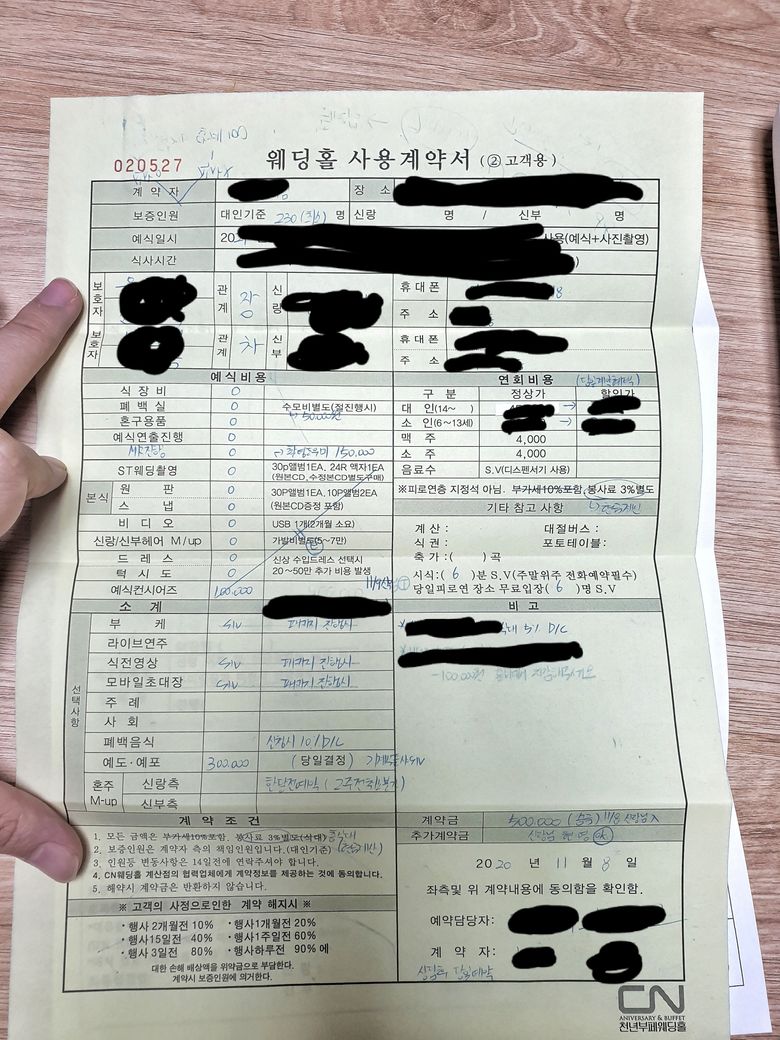 020527
웨딩홀 사용계약서 (② 고객용)
계 약 자 장 소
보증인원 대인기준 230 (최소) 명 신랑 명 / 신부 명
예식일시 20 사용(예식+사진촬영)
식사시간
보호자 관계 장 신랑 휴 대 폰 8
주 소
보호자 관계 차 신부 휴 대 폰
주 소
예 식 비 용
식 장 비 0
폐 백 실 0 수모비별도(절진행시)
혼구용품 0 50,000원
예식연출진행 0
MR진행 150,000
ST웨딩촬영 0 30p앨범1EA, 24R 액자1EA
(원본CD,수정본CD별도구매)
본식 원 판 0 30P앨범1EA, 10P앨범2EA
스 냅 0 (원본CD증정 포함)
비 디 오 0 USB 1개(2개월 소요)
신랑/신부헤어 M/up 0 가발비별도(5~7만)
드 레 스 0 신상 수입드레스 선택시
턱 시 도 0 20~50만 추가 비용 발생
예식컨시어즈 100,000
소 계
선택사항
부 케 S/V 패키지 진행시
라이브연주
식전영상 S/V 패키지 진행시
모바일초대장 S/V 패키지 진행시
주 례
사 회
폐백음식 신청시 10% D/C
예도·예포 300,000 (당일결정)
혼주 M-up 신랑측
신부측
연 회 비 용 (당일계약혜택)
구 분 정상가 할인가
대 인(14~ ) →
소 인(6~13세) →
맥 주 4,000
소 주 4,000
음료수 S.V(디스펜서기 사용)
※피로연층 지정석 아님. 부가세10%포함, 봉사료 3%별도
기타 참고 사항
계 산 : 대절버스 :
식 권 : 포토테이블:
축 가 :( )곡
시식:( 6 )분 S.V(주말위주 전화예약필수)
당일피로연 장소 무료입장( 6 )명 S.V
비 고
5% D/C
-100,000원
계 약 조 건
1. 모든 금액은 부가세10%포함. 봉사료 3%별도(석대)
2. 보증인원은 계약자 측의 책임인원입니다.(대인기준)
3. 인원등 변동사항은 14일전에 연락주셔야 합니다.
4. CN웨딩홀 계산점의 협력업체에게 계약정보를 제공하는 것에 동의합니다.
5. 해약시 계약금은 반환하지 않습니다.
※ 고객의 사정으로인한 계약 해지시 ※
·행사 2개월전 10% ·행사1개월전 20%
·행사15일전 40% ·행사1주일전 60%
·행사 3일전 80% ·행사하루전 90% 에
대한 손해 배상액을 위약금으로 부담한다.
계약시 보증인원에 의거한다.
계약금 500,000 11/8
추가계약금
2020 년 11 월 8 일
좌측및 위 계약내용에 동의함을 확인함.
예약담당자:
계 약 자:
CN
ANIVERSARY & BUFFET
천년부페웨딩홀